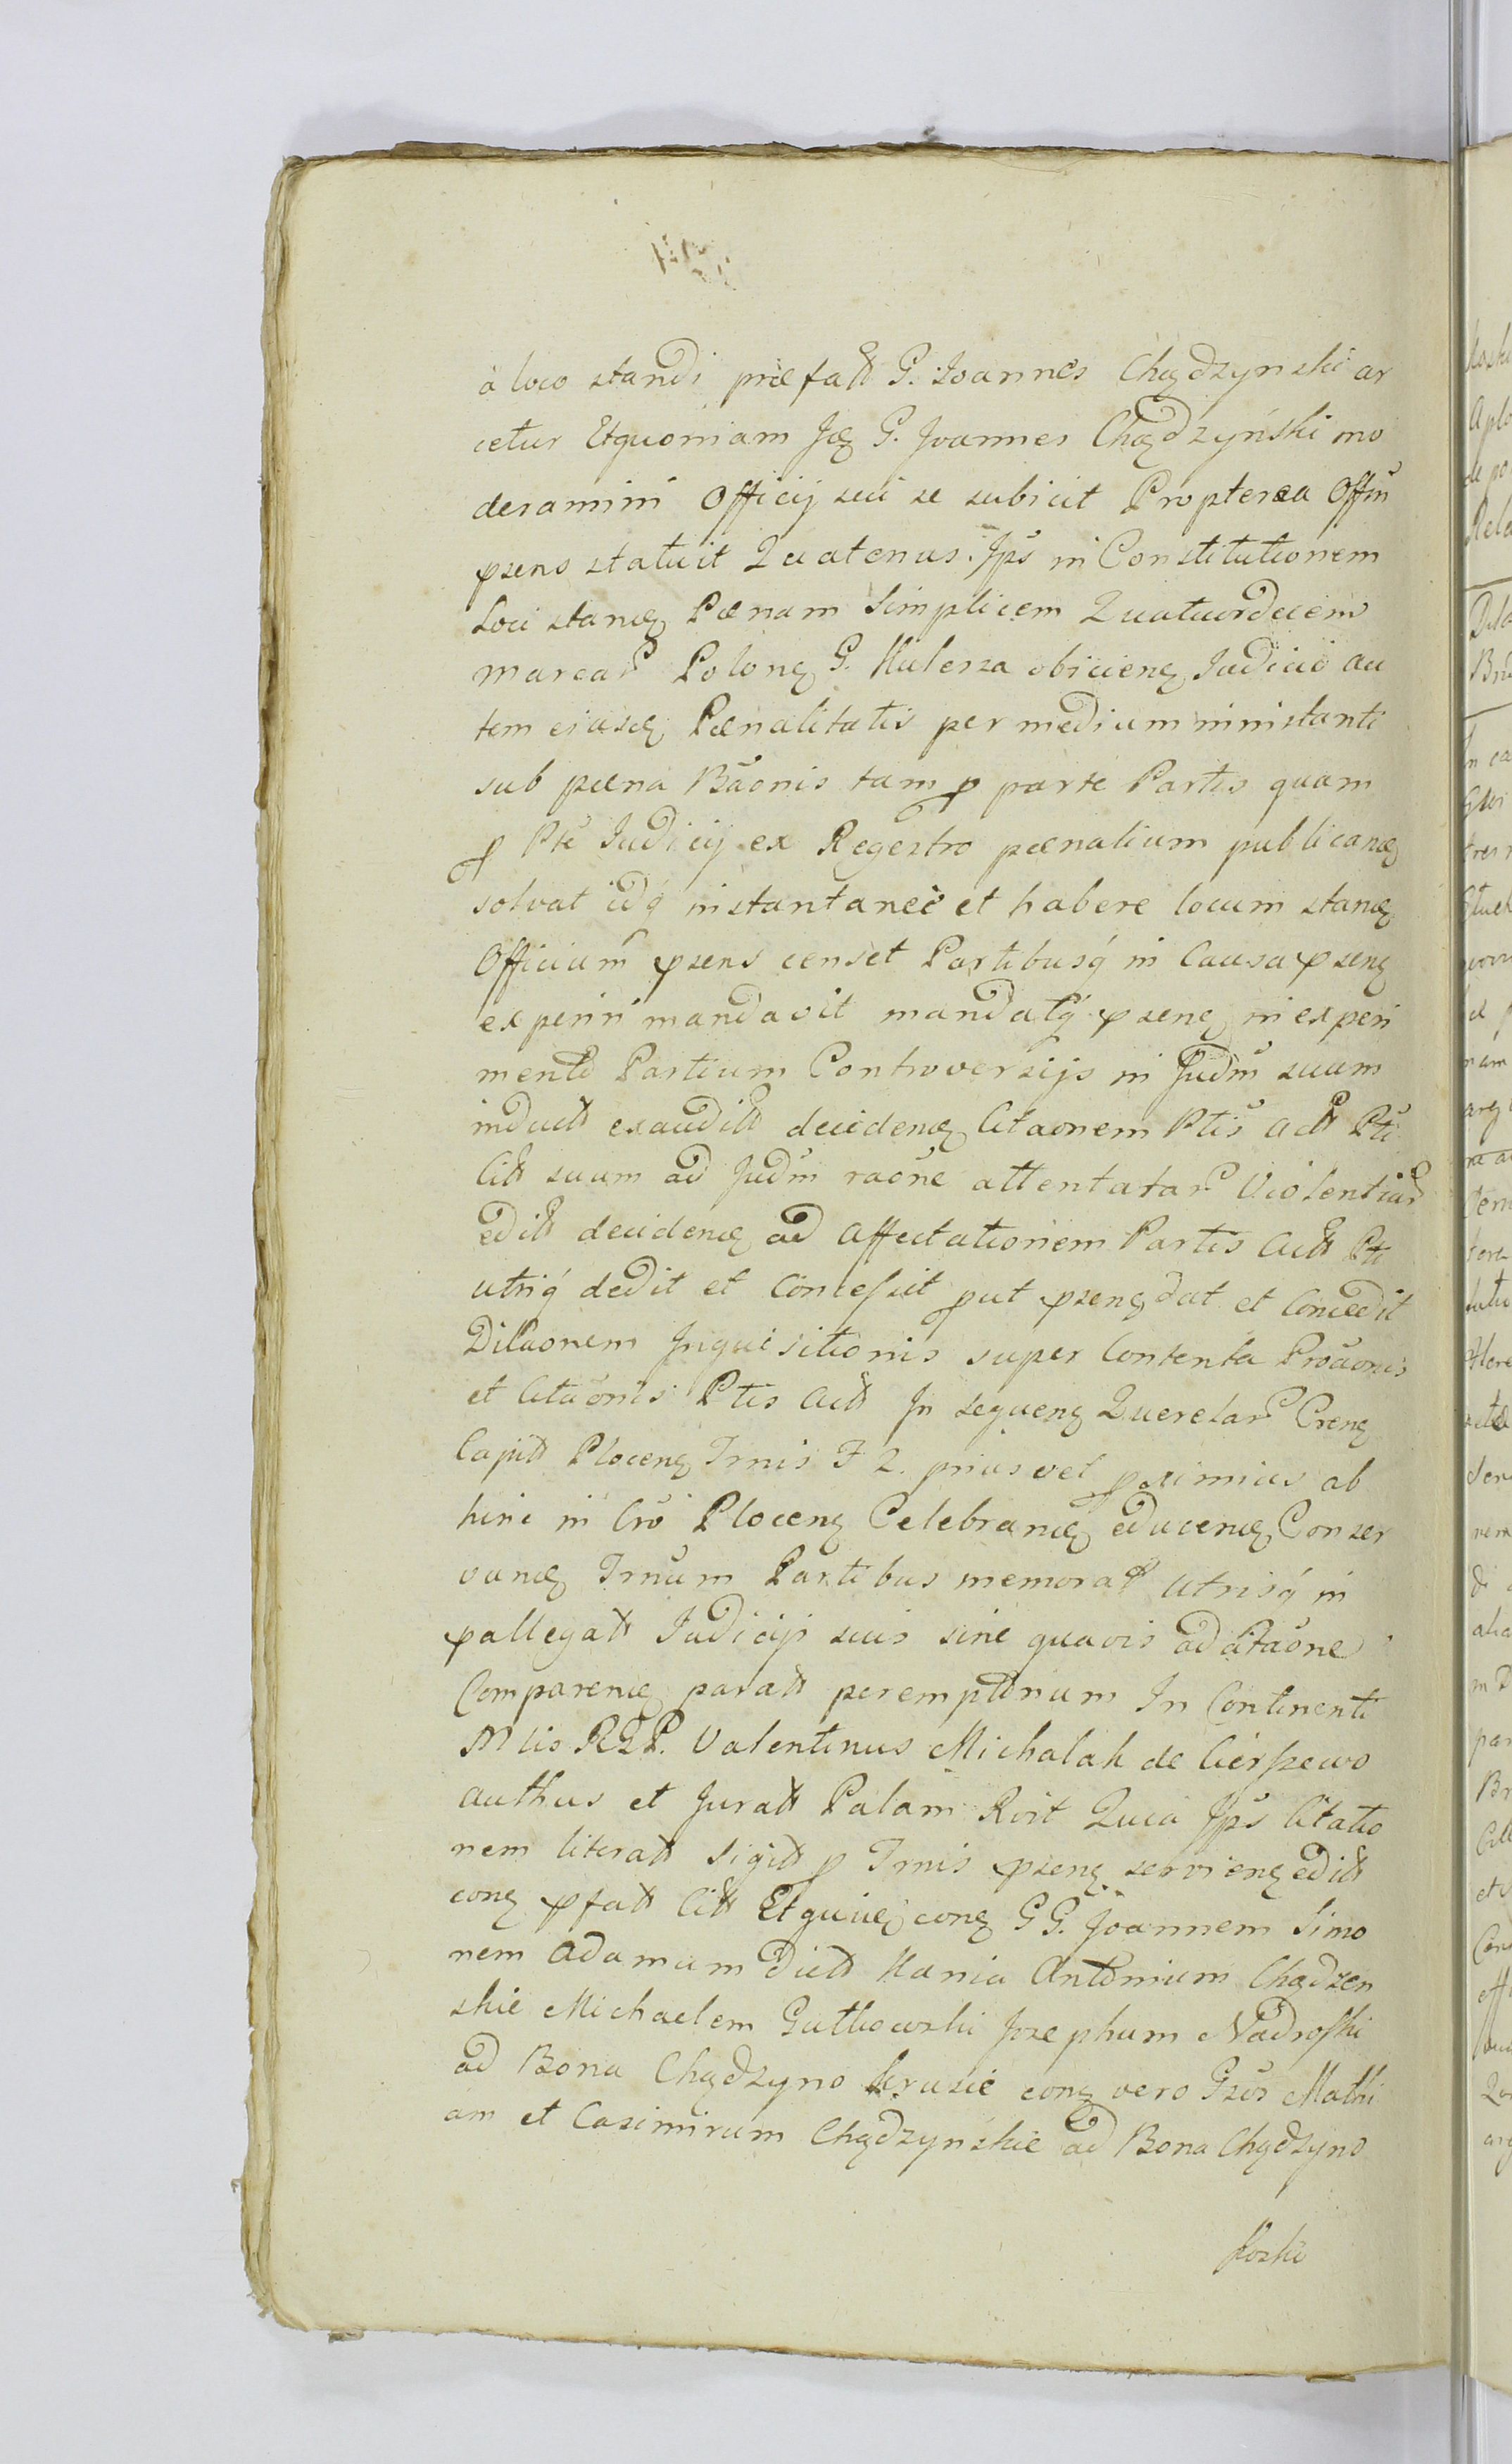 à loco standi præfatt G. Joannes Chądzynski ar
cetur Etquoniam Idę G. Joannes Chądzyński mo
deramini Officij sui se subicit Propterea Offm
psens statuit Quatenus Ips in Constitutionem
Loci standę Pœnam Simplicem Quatuordecem
marcar Polonę G. Kulesza obicienę Judicio au
tem eiusdę Pœnalitatis per medium ministanti
sub pœna Bãonis tam p parte Partis quam
p Pte Judicij ex Regestro pœnalium publicandę
solvat idq instantaneè et habere locum standę
Officium psens censet Partibusq in Causa psenę
experiri mandavit mandatq psenę in experi
mento Partium Controversijs in Judm suum
induct exaudit decidendę Citaonem Ptis Actt Pti
Citt suum ad Judm raone attentatar Violentiar
edit decidendę ad affectationem Partis Actt Pti
utriq dedit et Concessit put psenę dat et Concedit
Dilaonem Inquisitionis super Contenta Proãonis
et Citaonis Ptis Actt In sequenę Querelar Crenę
Capitt Plocenę Trnis F 2. prius vel proximius ab
hinc in Cro Plocenę Celebrandę educendę Conser
vandę Trnum Partibus memorat utrisq in
pallegatt Judicijs suis sine quavis adcitaone
Comparendę paratt peremptorium In Continenti
Mtis RLP. Valentinus Michalak de Cierszewo
authus et Juratt Palam Rvit Quia Ips Citatio
nem literatt sigitt p Trnis psenę servienę editt
conę pfatt Citt Etquidę conę GG. Joannem Simo
nem Adamum dictt Kania Antonium Chądzen
skie Michaelem Gutkowski Josephum Nadroski
ad Bona Chądzyno Krusie conę vero Gsos Mathi
am et Casimirum Chądzynskie ad Bona Chądzyno
Koski